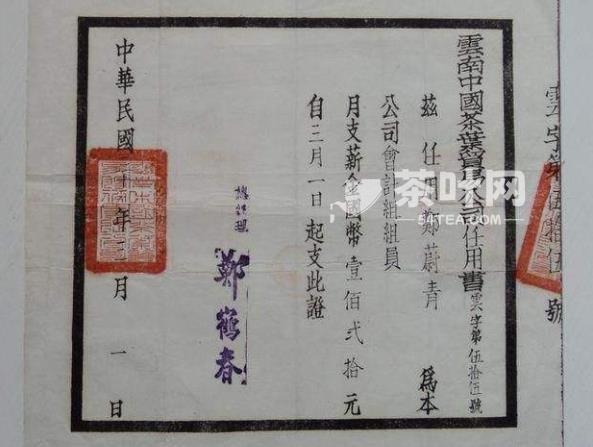 雲字第伍拾伍號
雲南中國茶葉貿易公司任用書 雲字第伍拾伍號
茲任用鄭蔚青爲本
公司會計組組員
月支薪金國幣壹佰弍拾元
自三月一日起支此證
總經理
鄭鶴春
中華民國十年三月一日
54TEA.COM